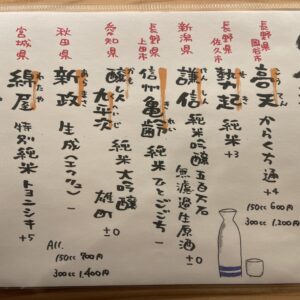 長野県
岡谷市
高天
からくち通 +4
150cc 600円
300cc 1,200円
長野県
佐久市
勢起
純米 +3
新潟県
謙信
純米吟醸 五百万石
無濾過生原酒 ±0
長野県
上田市
信州亀齢
純米 ひとごこち
愛知県
醸し人九平次
純米大吟醸
雄町 ±0
秋田県
新政
生成(エクリュ)
All.
150cc 700円
300cc 1,400円
宮城県
わたや
綿屋
特別純米 トヨニシキ +5